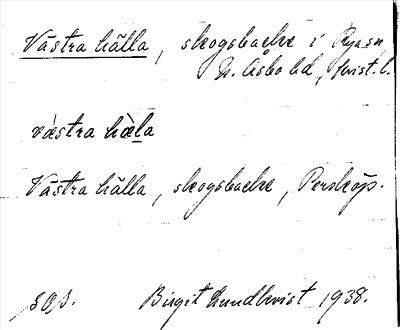 Västra hälla, skogsbacke i Ryasn,
N. Åsbo hd, krist. l.
västra hàḷa
Västra hälla, skogsbacke, Perstorp.
Birgit Lundkvist 1938.